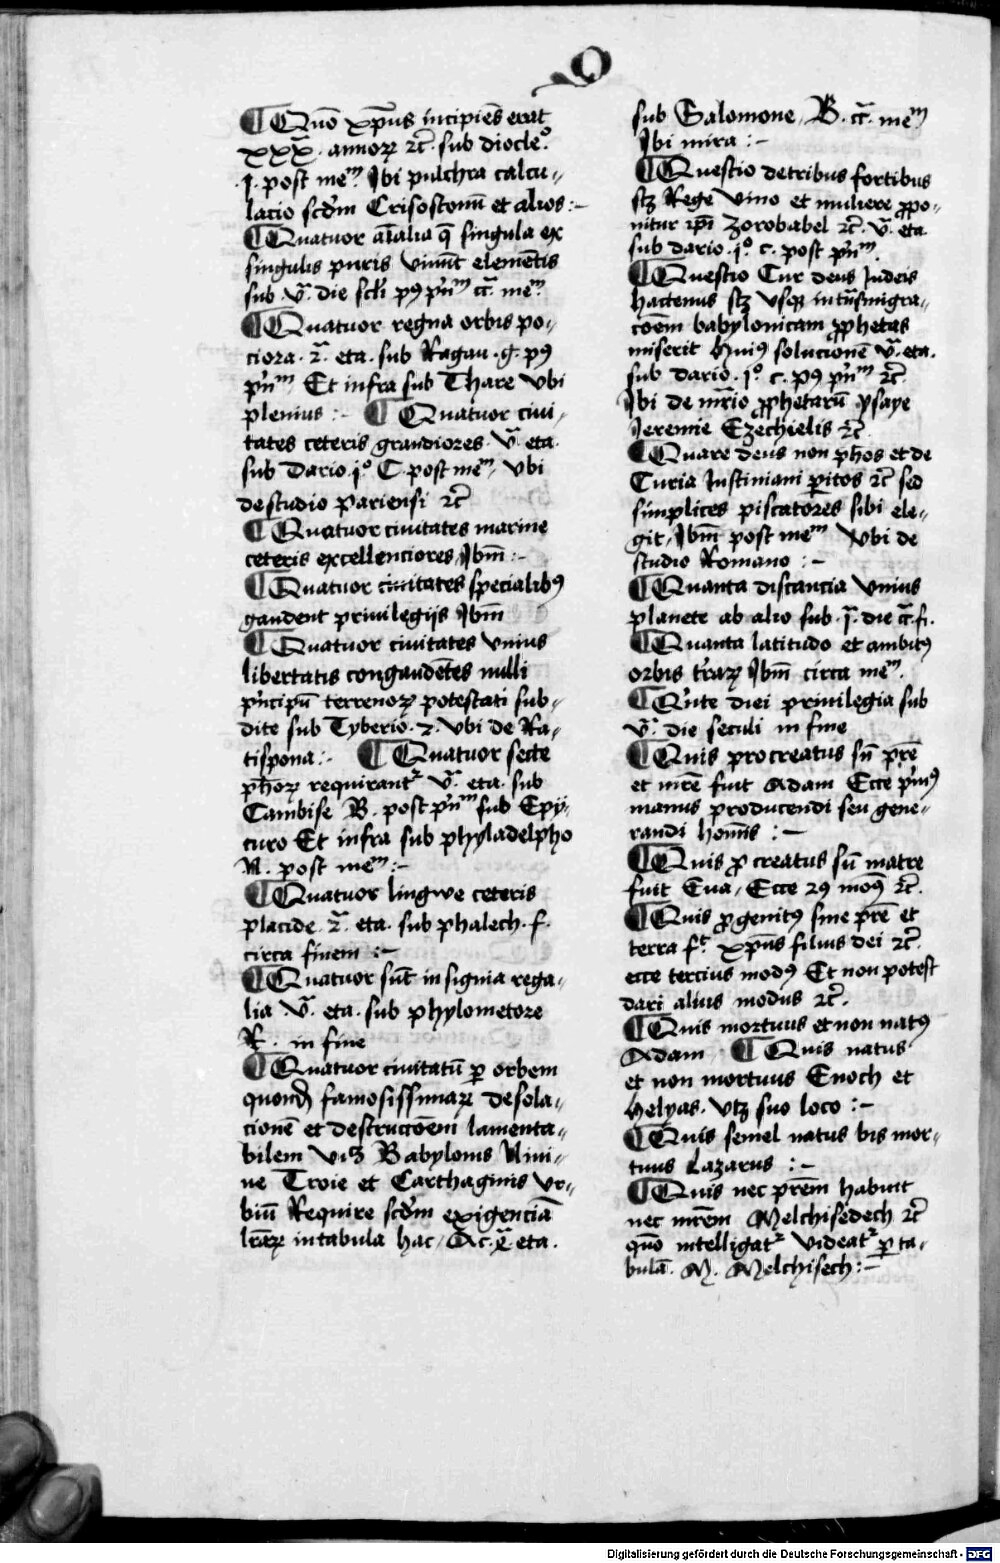 Q
¶ Quō xp̄us incipiēs erat
xxx. annoꝝ ⁊c̄. sub diocleº.
.J. post meᵐ. Jbi pulchra calcu-
lacio scđm Crisostomū et alios :-
¶ Quatuor aīalia q̄ singula ex
singulis puris viuūt elemētis
sub .v̄. die scłi pꝯ pⁱnᵐ cc̄. meᵐ
¶ Quatuor regna orbis po-
ciora. 2ª. eta. sub Ragau .g. pꝯ
pⁱnᵐ Et infra sub Thare vbi
plenius :- ¶ Quatuor ciui-
tates ceteris grandiores. vª. eta.
sub Dario. jº C. post meᵐ, vbi
de studio pariensi ⁊c̄
¶ Quatuor ciuitates marine
ceteris excellenciores, Jbm̄ :-
¶ Quatuor ciuitates specialibꝯ
gaudent priuilegijs Jbm̄
¶ Quatuor ciuitates vnius
libertatis congaudētes nulli
pⁱncipū terrenoꝝ potestati sub-
dite sub Tyberio. 2. vbi de Ra-
tispona :- ¶ Quatuor secte
ph̄oꝝ requirantᷣ vª. eta. sub
Cambise B. post pⁱnᵐ sub Epy-
curo Et infra sub phyladelpho
N. post meᵐ :-
¶ Quatuor lingwe ceteris
placide. 2ª. eta. sub phalech. f.
circa finem :-
¶ Quatuor sūt insignia rega-
lia vª. eta. sub phylometore
R. in fine
¶ Quatuor ciuitatū ꝑ orbem
quond̄ famosissimaꝝ desola-
cionē et destructōem lamenta-
bilem viꝫ Babylonis Nini-
ue Troie et Carthaginis vr-
biū Require scđm exigenciā
lr̄aꝝ in tabula hac, eta.
sub Salomone, B. cc̄. meᵐ
Jbi mira :-
¶ Questio de tribus fortibus
scꝫ Rege vino et muliere ꝓpo-
nitur ip̄i Zorobabel ⁊c̄. vª. eta
sub dario. jº c. post pⁱnᵐ.
¶ Questio Cur deus Judeis
hactenus scꝫ vsqꝫ in tᷓnsmigra-
cōem babylonicam ꝓphetas
miserit huiꝯ solucionē vª. eta.
sub dario. jº c. pꝯ pⁱnᵐ ⁊c̄
Jbi de mr̄io ꝓphetarū ysaye
Jeremie Ezechielis ⁊c̄
¶ Quare deus non ph̄os et de
Curia Justiniani ꝑitos ⁊c̄ sed
simplices piscatores sibi ele-
git, Jbm̄ post meᵐ vbi de
studio Romano :-
¶ Quanta distancia vnius
planete ab alio sub .jª. die cc̄. fi.
¶ Quanta latitudo et ambitꝯ
orbis tr̄aꝝ Jbm̄ circa meᵐ.
¶ Qⁱnte diei priuilegia sub
vª. die seculi in fine
¶ Quis procreatus sn̄ pr̄e
et mr̄e fuit Adam Ecce pⁱmꝯ
manus producendi seu gene-
randi homīs :-
¶ Quis ꝓcreatus sn̄ matre
fuit Eua, Ecce 2ꝯ modꝯ ⁊c̄.
¶ Quis ꝓgenitꝯ sine pr̄e et
terra fᵗ xp̄us filius dei ⁊c̄.
ecce tercius modꝯ Et non potest
dari alius modus ⁊c̄.
¶ Quis mortuus et non natꝯ
Adam ¶ Quis natus
et non mortuus Enoch et
Helyas. vtꝫ suo loco :-
¶ Quis semel natus bis mor-
tuus Lazarus :-
¶ Quis nec pr̄em habuit
nec mr̄em Melchisedech ⁊c̄
quō intelligatᷣ videatᷣ ꝑ ta-
bulā. M. Melchisech :-
Digitalisierung gefördert durch die Deutsche Forschungsgemeinschaft - DFG